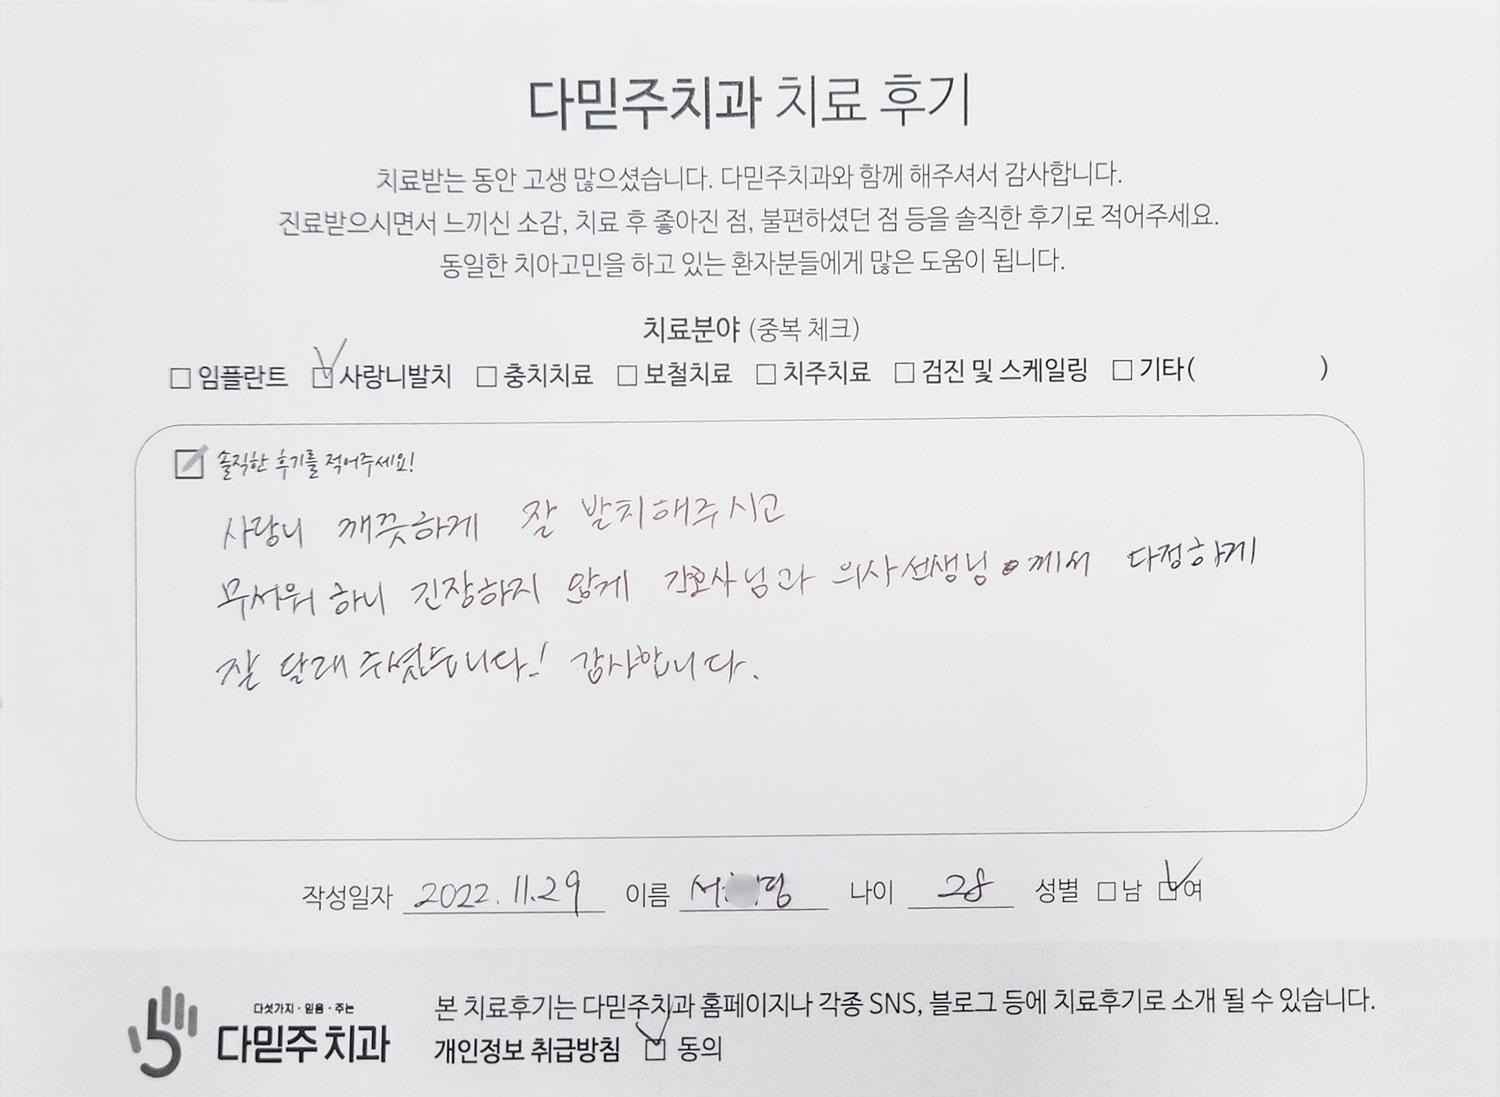 다믿주치과 치료 후기
치료받는 동안 고생 많으셨습니다. 다믿주치과와 함께 해주셔서 감사합니다.
진료받으시면서 느끼신 소감, 치료 후 좋아진 점, 불편하셨던 점 등을 솔직한 후기로 적어주세요.
동일한 치아고민을 하고 있는 환자분들에게 많은 도움이 됩니다.
치료분야 (중복 체크)
□ 임플란트 ☑ 사랑니발치 □ 충치치료 □ 보철치료 □ 치주치료 □ 검진 및 스케일링 □ 기타( )
솔직한 후기를 적어주세요!
사랑니 깨끗하게 잘 발치해주시고
무서워 하니 긴장하지 않게 간호사님과 의사선생님께서 다정하게
잘 달래 주셨습니다! 감사합니다.
작성일자 2022. 11. 29 이름 서 나이 28 성별 □ 남 ☑ 여
다섯가지·믿음·주는
다믿주치과
본 치료후기는 다믿주치과 홈페이지나 각종 SNS, 블로그 등에 치료후기로 소개 될 수 있습니다.
개인정보 취급방침 ☑ 동의